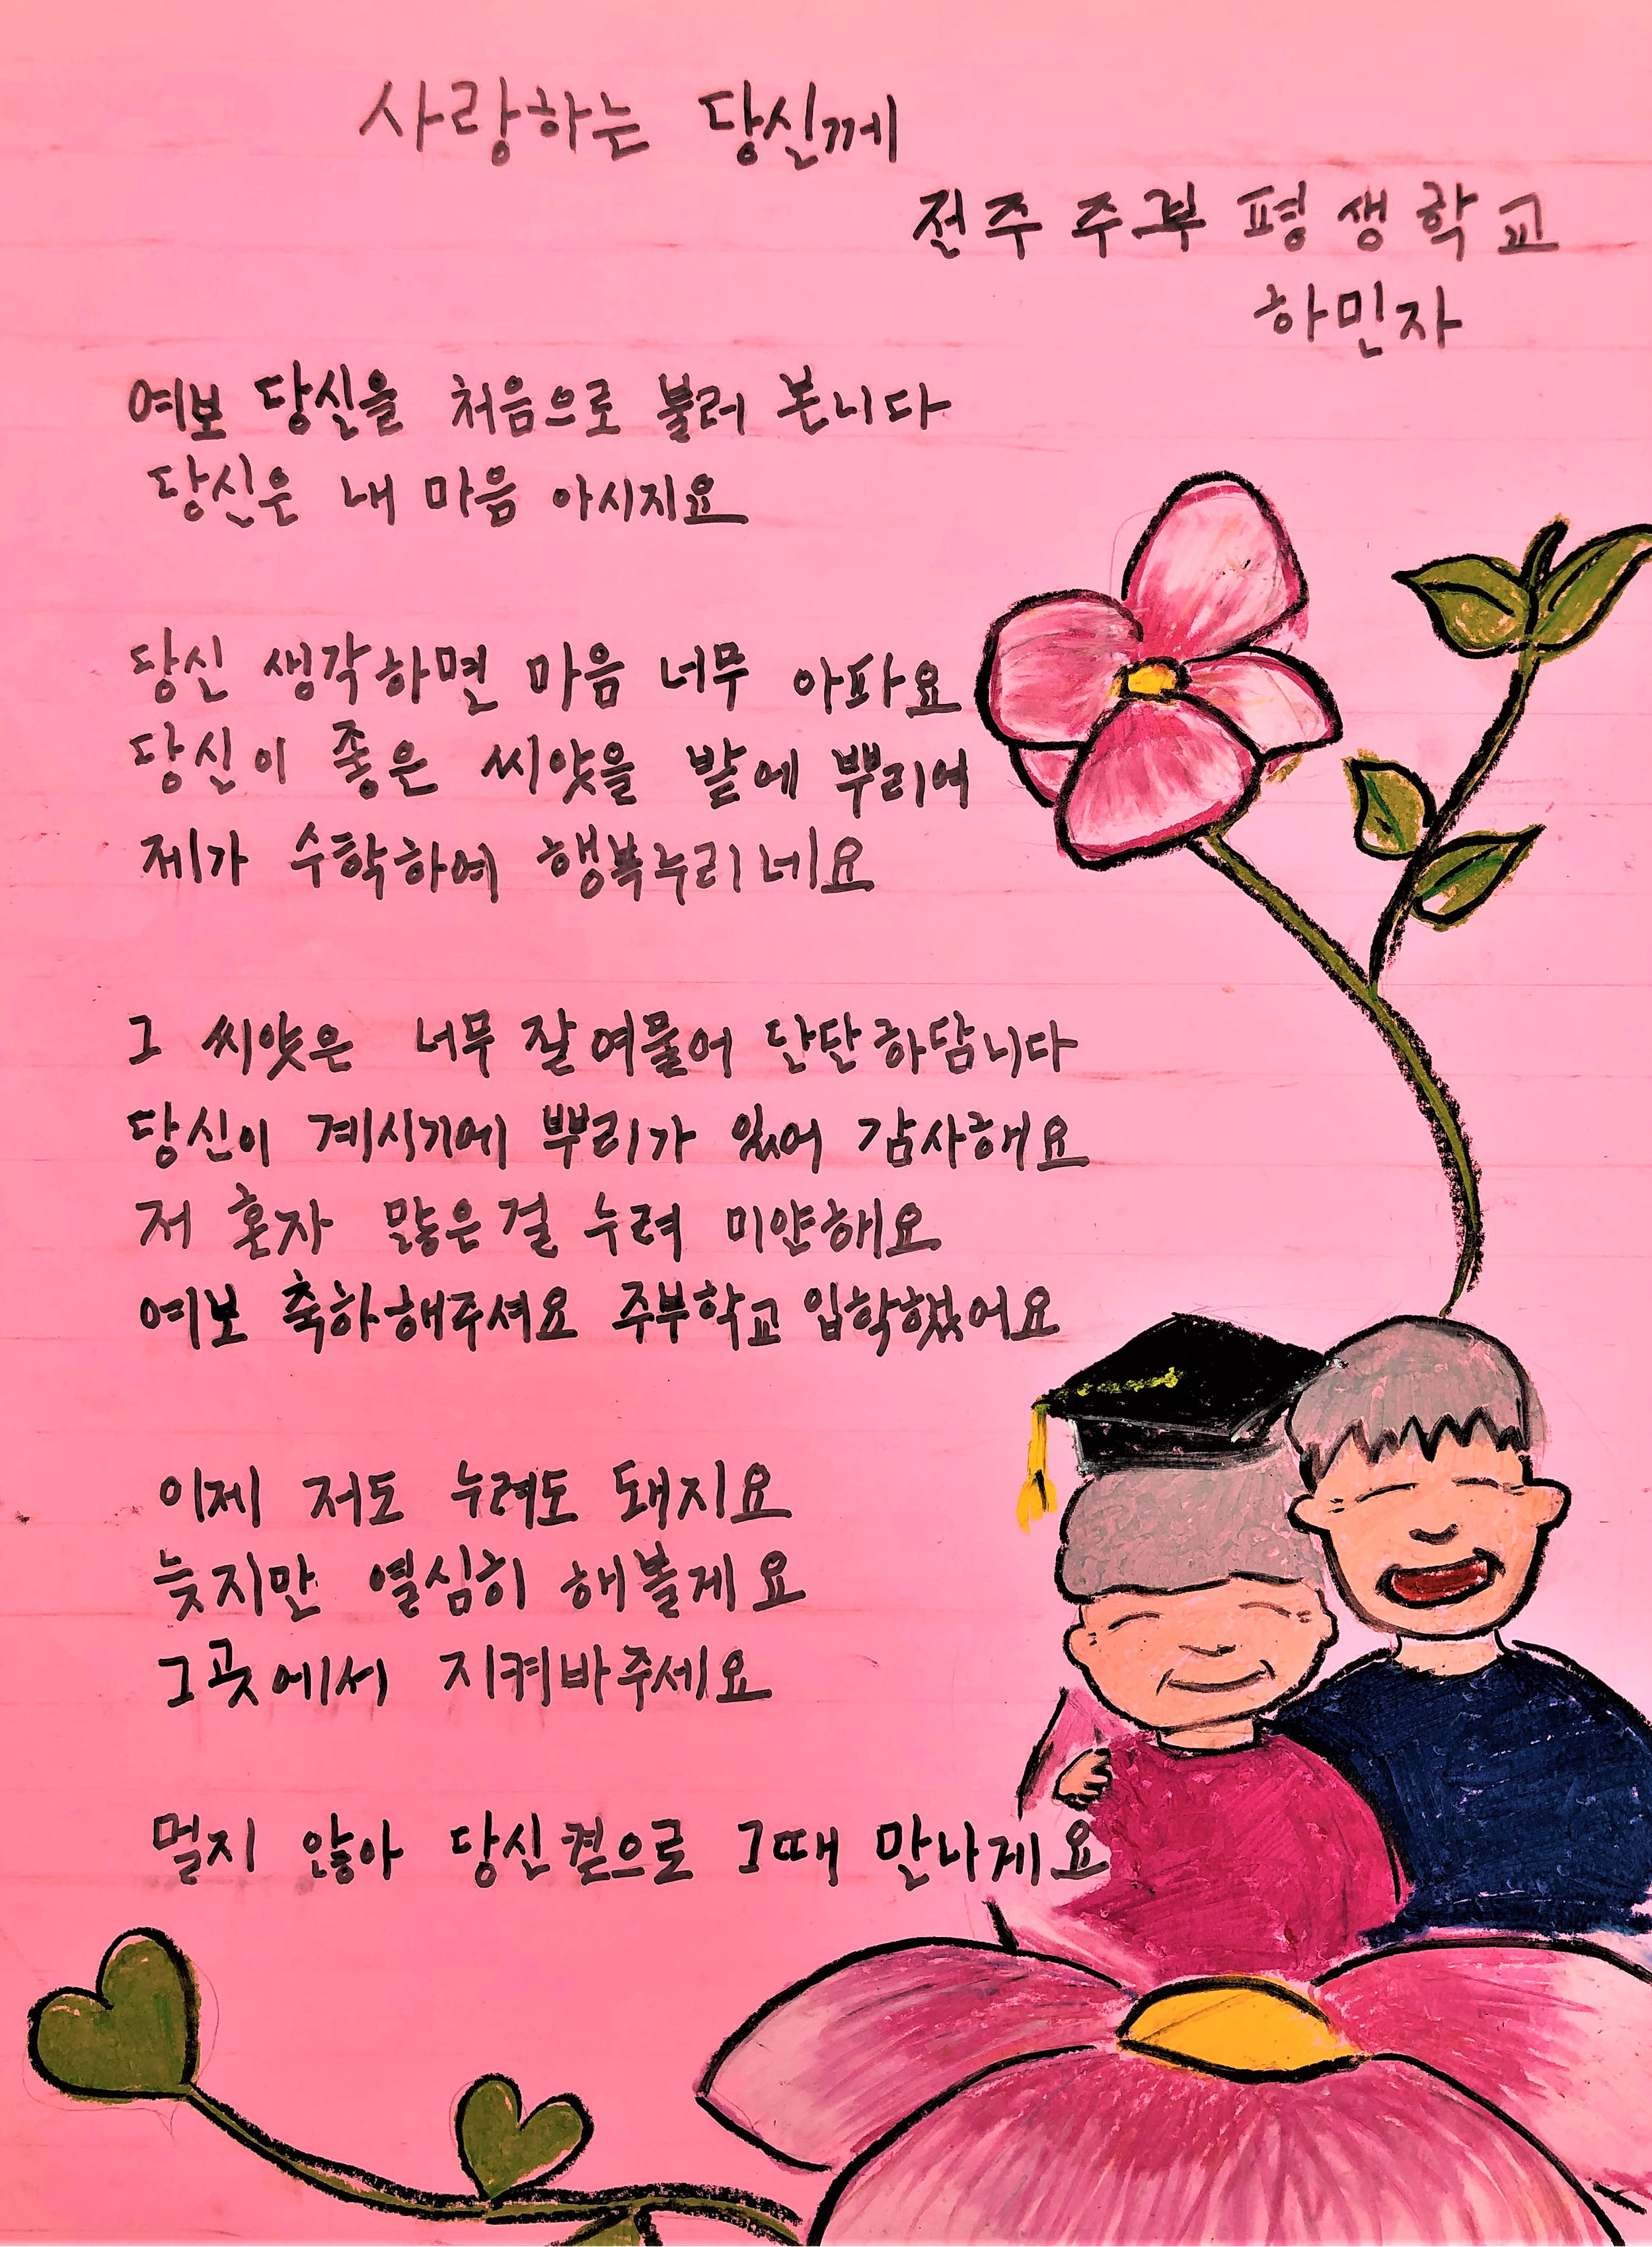 사랑하는 당신께
전주 주부 평생학교
하민자
여보 당신을 처음으로 불러 본니다
당신은 내 마음 아시지요
당신 생각하면 마음 너무 아파요
당신이 좋은 씨앗을 밭에 뿌리여
제가 수학하여 행복누리네요
그 씨앗은 너무 잘여물어 단단하담니다
당신이 계시기에 뿌리가 있어 감사해요
저 혼자 많은걸 누려 미안해요
여보 축하해주셔요 주부학교 입학했어요
이제 저도 누려도 돼지요
늦지만 열심히 해볼게요
그곳에서 지켜바주세요
멀지 않아 당신켵으로 그때 만나게요